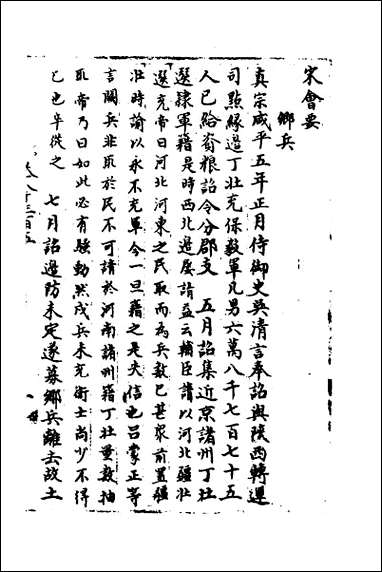 宋會要
鄉兵
真宗咸平五年正月侍御史吳清言奉詔與陝西轉運
司點緣邊丁壯充保毅軍凡男六萬八千七百七十五
人已給資糧詔令分郡支 五月詔集近京諸州丁壯
選隸軍籍是時西北邊屢請益云輔臣請以河北彊壯
選充帝曰河北河東之民取而為兵數已甚眾前置彊
壯時諭以永不充軍今一旦籍之是失信也呂蒙正等
言闕兵非取於民不可請於河南諸州籍丁壯量數抽
取帝乃曰如此必有騷動然戍兵未充衛士尚少不得
已也卒從之 七月詔邊防未定遂募鄉兵離去故土